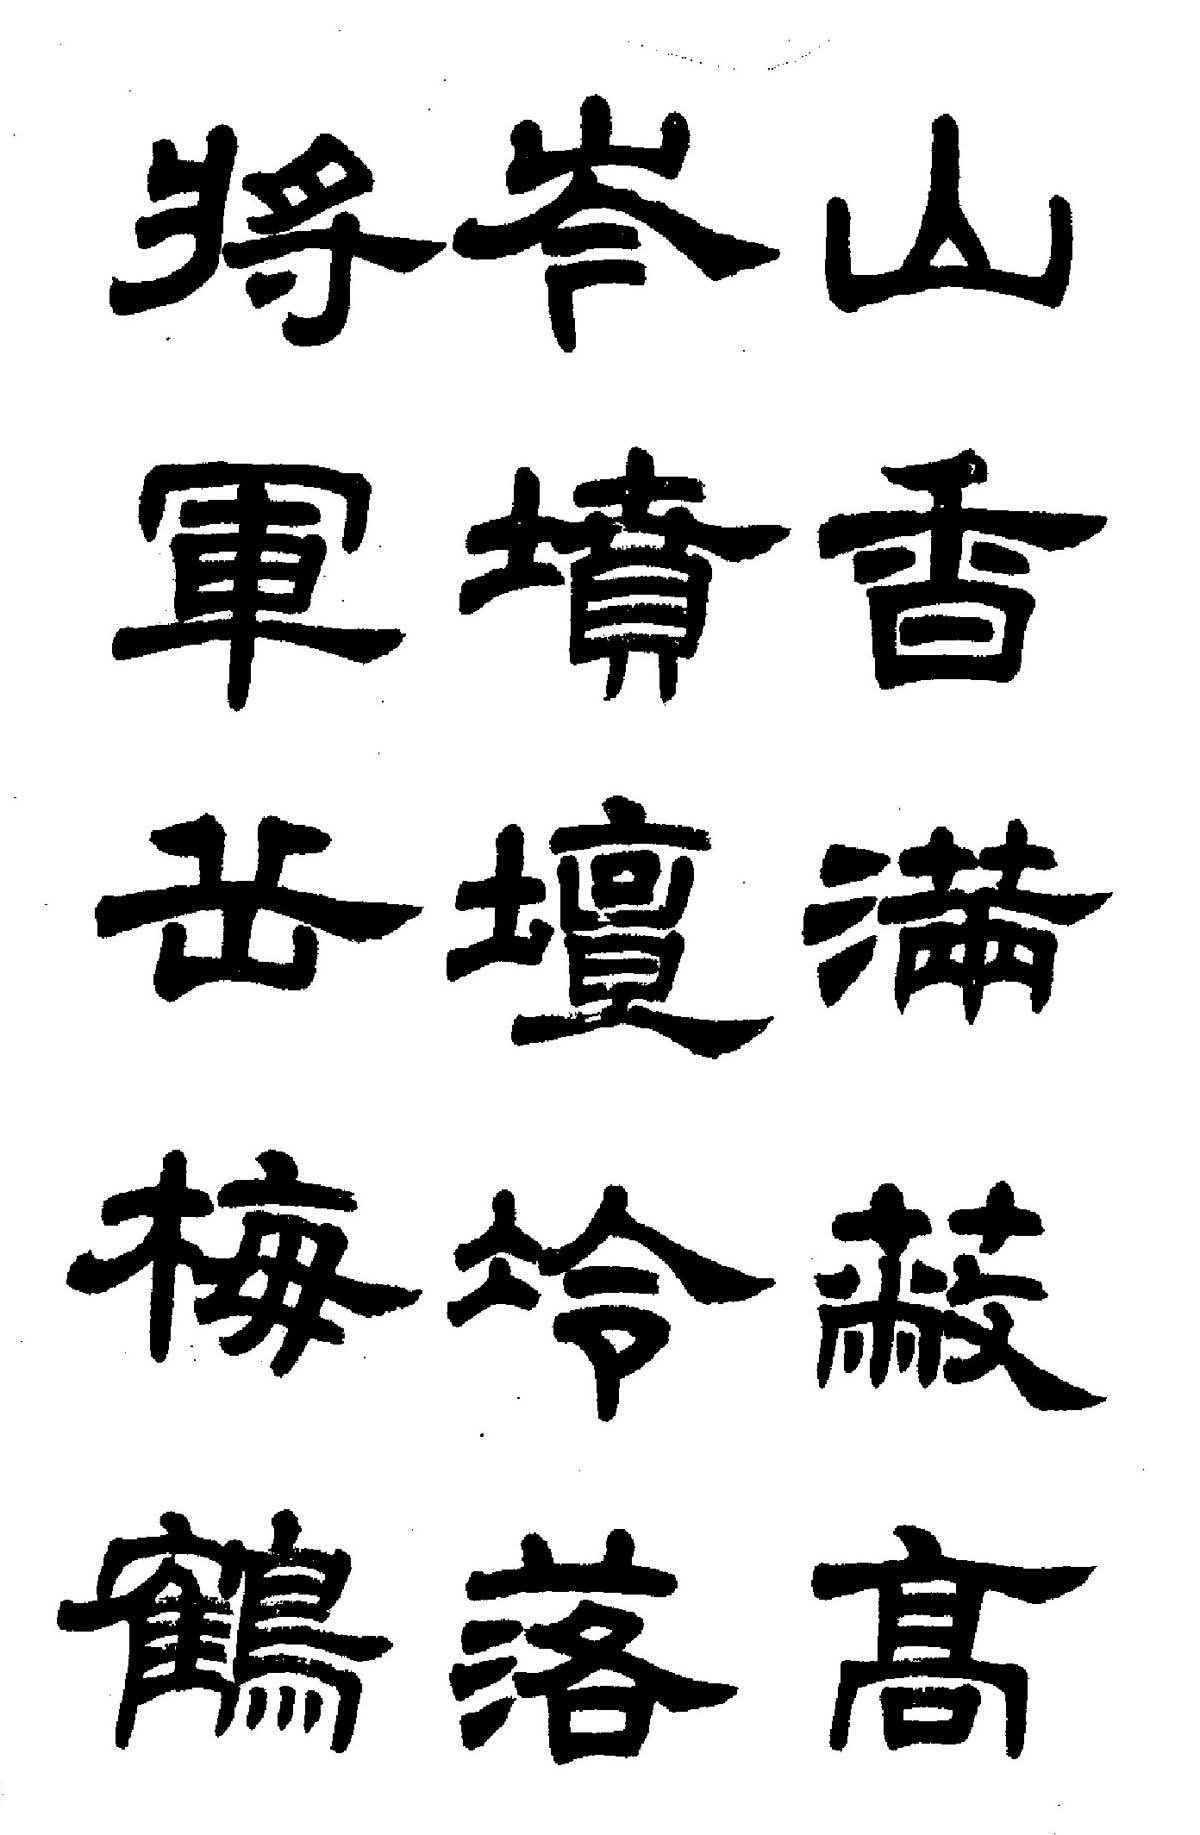 山香滿蔽高
岑墳壇坽落
將軍岳梅鶴